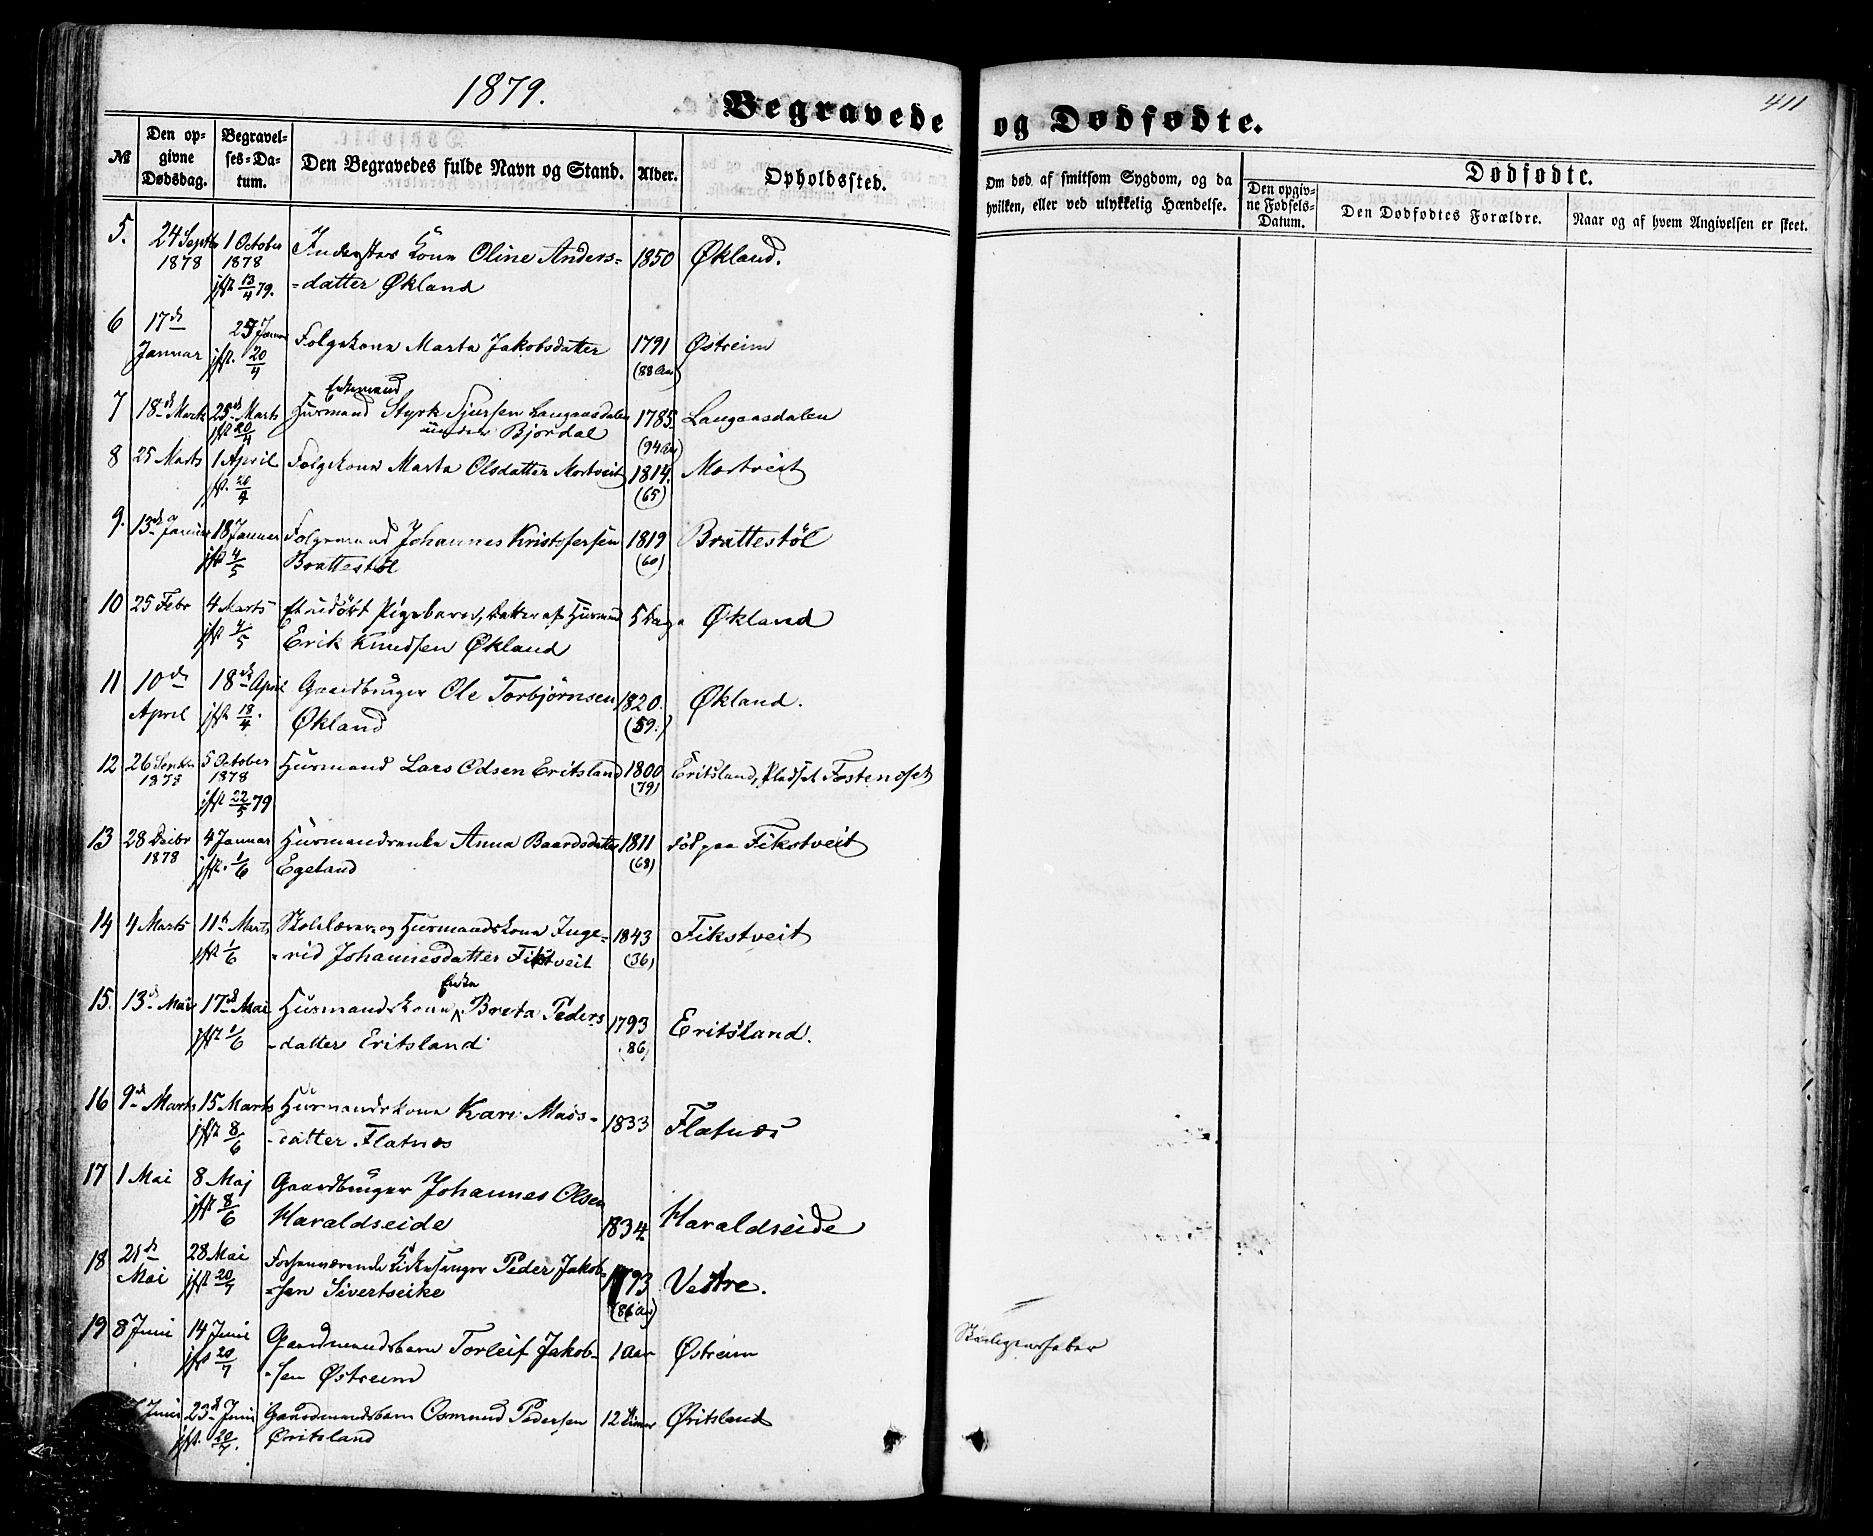 1879.
Begravede og Dødfødte.
411
№
Den opgivne Dødsdag.
Begravelses-Datum.
Den Begravedes fulde Navn og Stand.
Alder.
Opholdssted.
Om død af smitsom Sygdom, og da hvilken, eller ved ulykkelig Hændelse.
Dødfødte.
Den opgivne Fødsels-Datum.
Den Dødfødtes Forældre.
Naar og af hvem Angivelsen er skeet.
5. 24 Septbr 1 October Kone Oline Anders- 1850 Økland.
1878 1878
jfst 13/4 79. -datter Økland
6 17de 25 Januar Folgekone Marta Jakobsdatter 1791 Østreim
Januar jfst. 20/4 (88 Aar)
Enkemand
7 18de Marts 25de Marts Huusmand Styrk Sjursen Langaasdalen 1785 Langaasdalen
jfst 20/4 under Bjordal (94 Aar)
8 25 Marts 1 April Folgekone Marta Olsdatter Mortveit 1814. Mortveit
jfst. 20/4 (65)
9. 13de Januar 18 Januar Folgemand Johannes Kristofersen 1819 Brattestöl
jfst 4/5 Brattestøl (60)
10 25 Febr 4 Marts Et udöbt Pigebarn, Datter af Huusmand 5 Dage Økland
jfst 4/5 Erik Knudsen Økland
11 10de 18de April Gaardbruger Ole Torbjørnsen 1820. Økland.
April jfst 18/4. Økland (59.)
12 26 Septbr 5 October Huusmand Lars Odsen Eritsland 1800 Eritsland, Pladset
1878 1878 (79)
jfst 22/5 79
13 28 Decbr 4 Januar Huusmandsenke Anna Baardsdatter 1811 Död paa Fikstveit
1878 jfst. 1/6 Egeland (68)
14 4 Marts 11te Marts Skolelærer og Huusmandskone Inge- 1843 Fikstveit
jfst 1/6 -rid Johannesdatter Fikstveit (36)
Enke
15. 13de Mai 17de Mai Huusmandskone Breta Peders 1793 Eritsland.
jfst 1/6 -datter Eritsland (86)
16 9de Marts 15 Marts Huusmandskone Kari Mads- 1833 Flatnæs
jfst 8/6 -datter Flatnæs
17 1 Mai 8 Maj Gaardbruger Johannes Olsen
jfst 8/6 Haraldseide 1834. Haraldseide
18 21de 28 Mai Forhenværende Kirkesanger Peder Jakob- 1793 Vestre.
Mai jfst 20/7 -sen Sivertseike (86 Aar)
19 8 Juni 14 Juni Gaardmandsbarn Torleif Jakob- 1 Aar Østreim Skarlagensfeber
jfst 20/7 -sen Østreim
Juni 23de Juni Gaardmandsbarn Osmund Pedersen 12 Timer Øritsland
jfst. 20/7. Øritsland